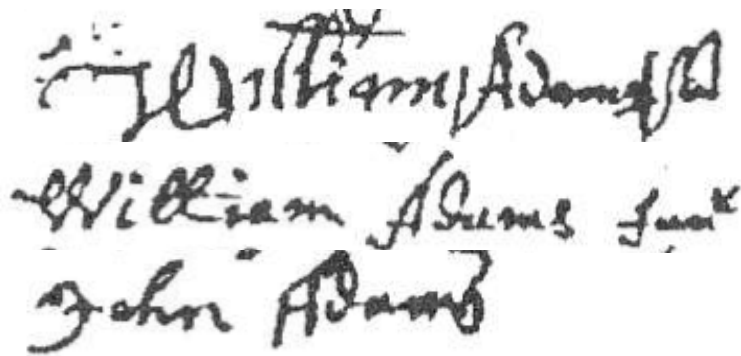 William Adams
William Adams Junr
John Adams